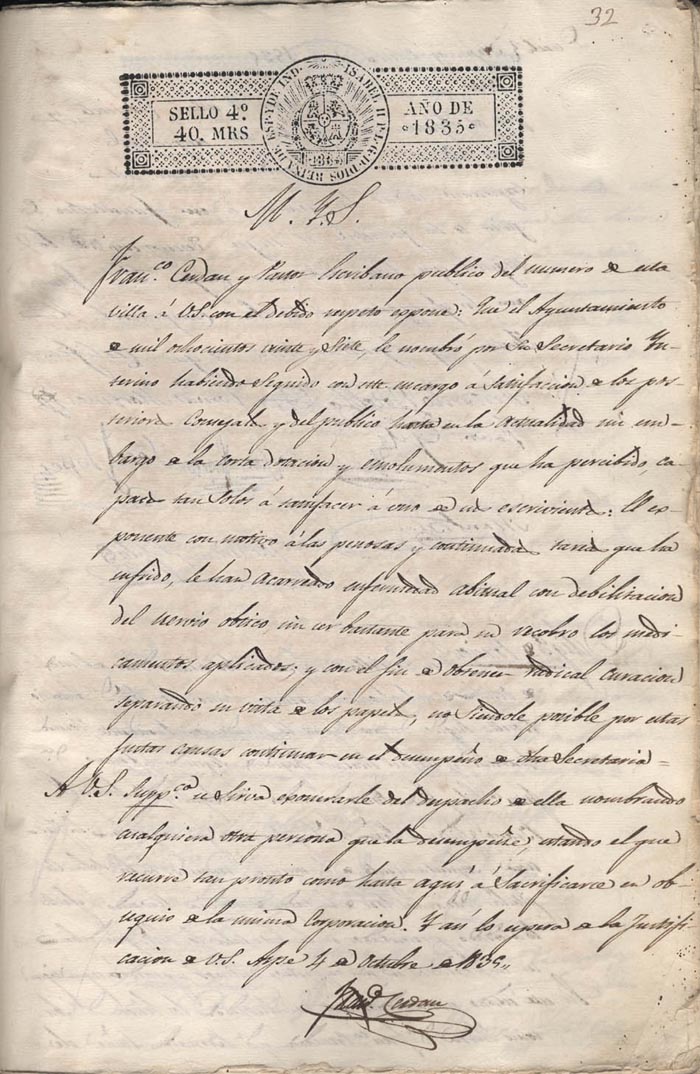 32
SELLO 4º
40. MRS
ISABEL II P. L. G. D. DIOS REINA DE ESP. Y DE IND.
AÑO DE
1835
M. Y. S.
Fran.co Cerdan y Pastor Escribano publico del numero de esta
villa á V.S. con el debido respeto expone: Que el Ayuntamiento
de mil ochocientos veinte y Siete, le nombró por Su Secretario Yn-
terino habiendo Seguido con este encargo á Satisfacion de los pos-
teriores Concejales y del publico hasta en la actualidad sin em-
bargo de la corta dotacion y emolumentos que ha percibido, ca-
paces tan Solos á satisfacer á uno de sus escrivientes: El ex-
ponente con motivo á las penosas y continuadas tareas que ha
sufrido, le han acarreado enfermedad abitual con debilitacion
del nervio obtico, sin ser bastante para su recobro los medi-
camentos aplicados; y con el fin de obtener radical curacion
separando su vista de los papeles, no Siendole posible por estas
justas causas continuar en el desempeño de dha Secretaria=
A V.S. Supp.co se Sirva exonerarle del despacho de ella nombrando
cualquiera otra persona que la desempeñe, estando el que
recurre tan pronto como hasta aqui á Sacrificarce en ob-
sequio de la misma Corporacion. Y asi lo espera de la Justifi-
cacion de V.S. Aspe 4 de Octubre de 1835,,
Fran.co Cerdan